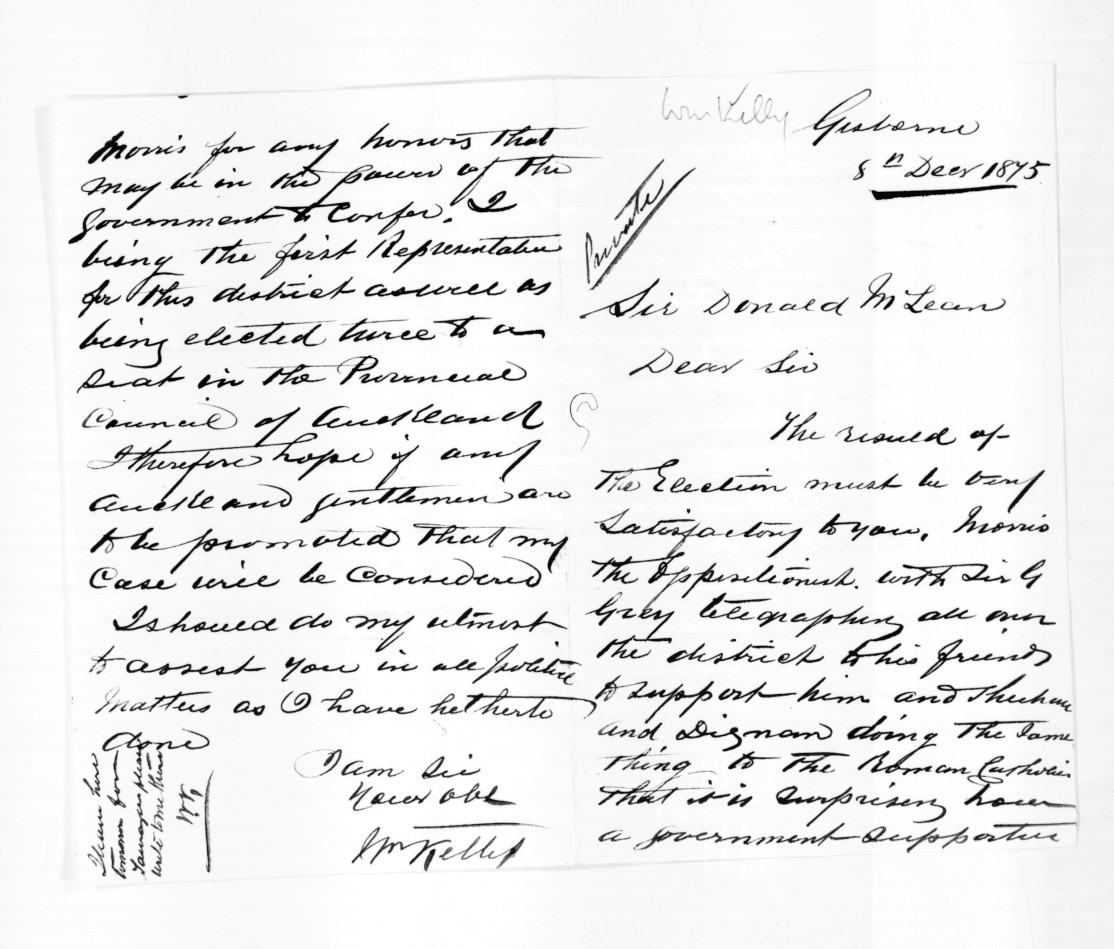 Wm Kelly
Gisborne
8th Decr 1875.
Private
Sir Donald McLean
Dear Sir
The resued of
the Election must be very
Satisfactory to you. Morris
the Oppositionist. with Sir G
Grey telegraphing all over
the district to his friends
to support him and Sheehan
and Dignan doing the same
thing to the Roman Catholics
that it is surprising how
a government supporter
Morris for any honors that
may be in the power of the
government to Confer. I
being the first Representative
for this district aswell as
being elected twice to a
seat in the Provincial
Council of Auckland
I therefore hope if any
Auckland gentlemen are
to be promoted that my
Case will be Considered
I should do my utmost
to assest you in all politice
Matters as I have hetherto
done
I am Sir
Your obt
Wm Kelly
I leave here
tomorrow for
Tauranga please
write to me there
WK